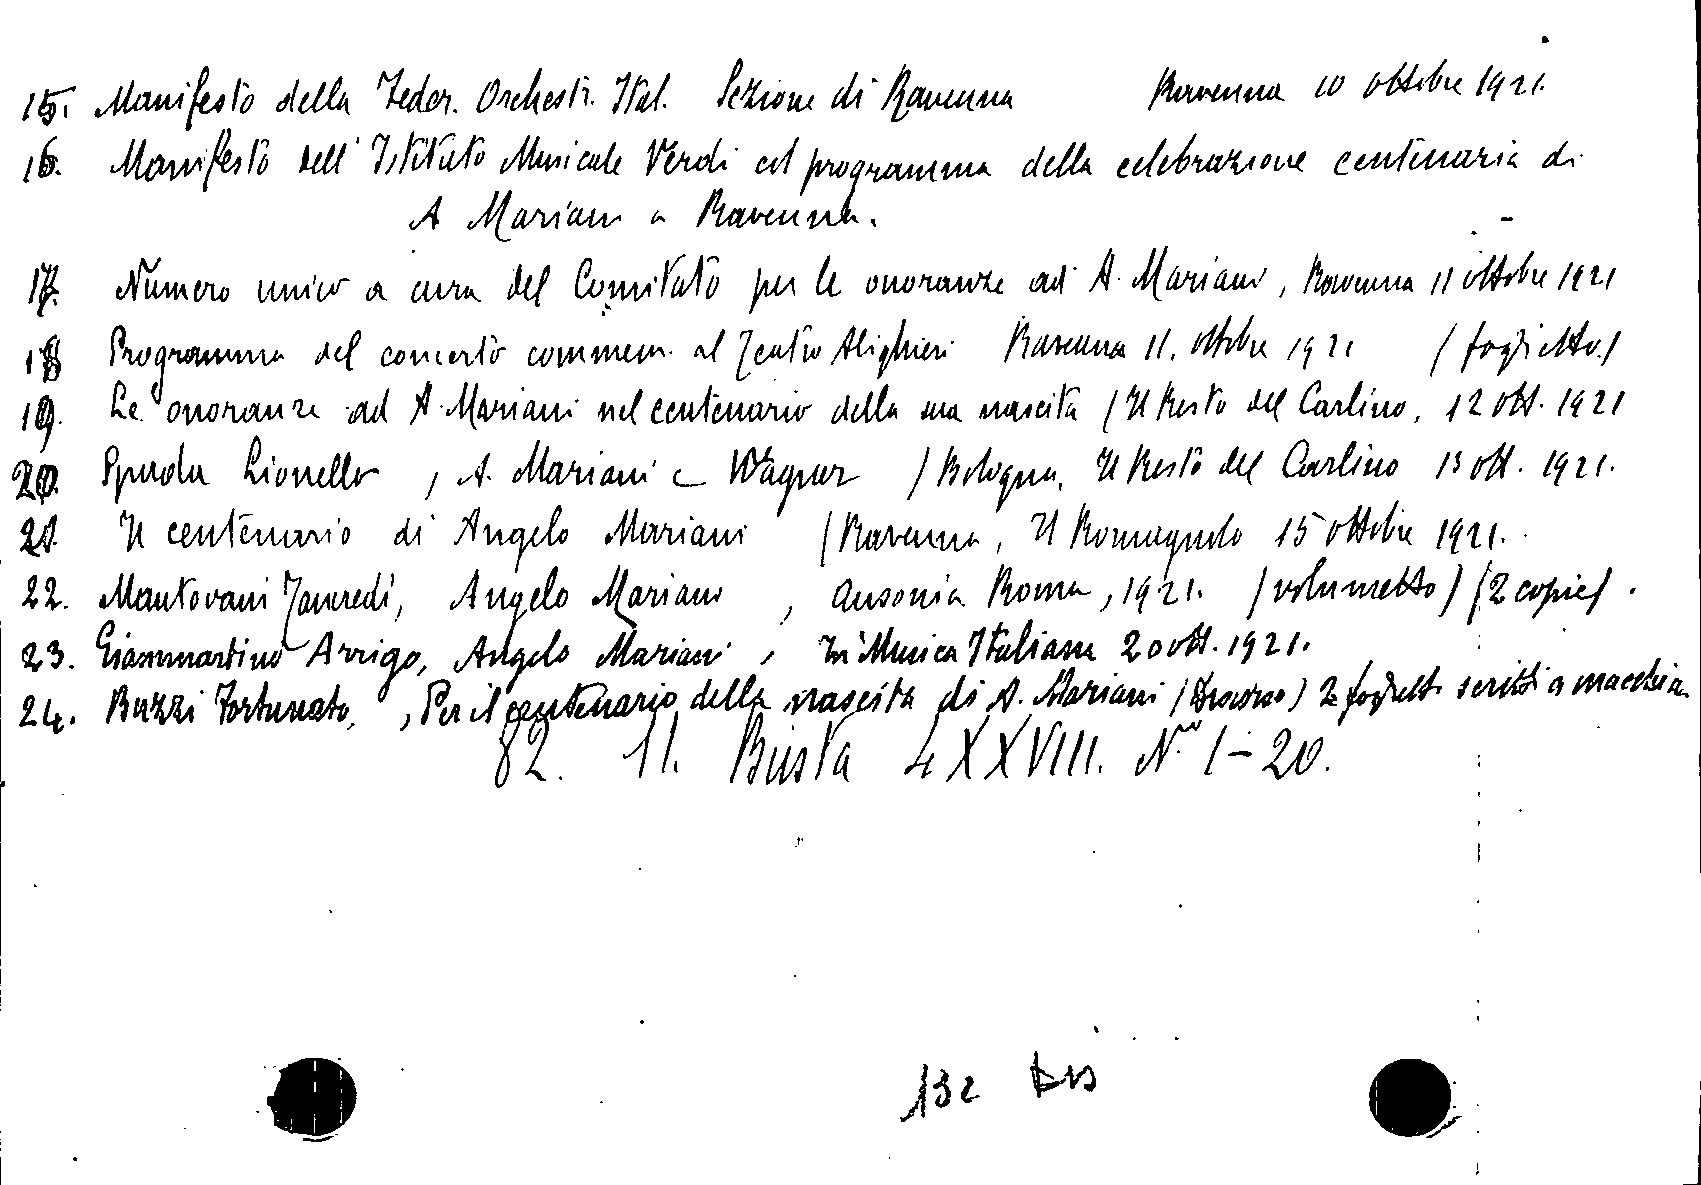 15. Manifesto della Feder. Orchestr. Ital. Sezione di Ravenna Ravenna 10 ottobre 1921.
16. Manifesto dell'Istituto Musicale Verdi col programma della celebrazione centenaria di
A Mariani a Ravenna.
17. Numero unico a cura del Comitato per le onoranze ad A. Mariani, Ravenna 11 ottobre 1921
18 Programma del concerto commem. al Teatro Alighieri Ravenna 11. ottobre 1921 (foglietto.)
19. Le onoranze ad A. Mariani nel centenario della sua nascita (Il Resto del Carlino, 12 ott. 1921
20. Spada Lionello, A. Mariani e Wagner (Bologna, Il Resto del Carlino 13 ott. 1921.
21. Il centenario di Angelo Mariani (Ravenna, Il Romagnolo 15 ottobre 1921.
22. Mantovani Tancredi, Angelo Mariani, Ausonia Roma, 1921. (volumetto) (2 copie).
23. Giammartino Arrigo, Angelo Mariani, In "Musica Italiana 20 ott. 1921.
24. Buzzi Fortunato, , Per il centenario della nascita di A. Mariani (Discorso) 2 foglietti scritti a macchina
82. 11. Busta 4 XXVIII. N.° 1-20.
132 bis